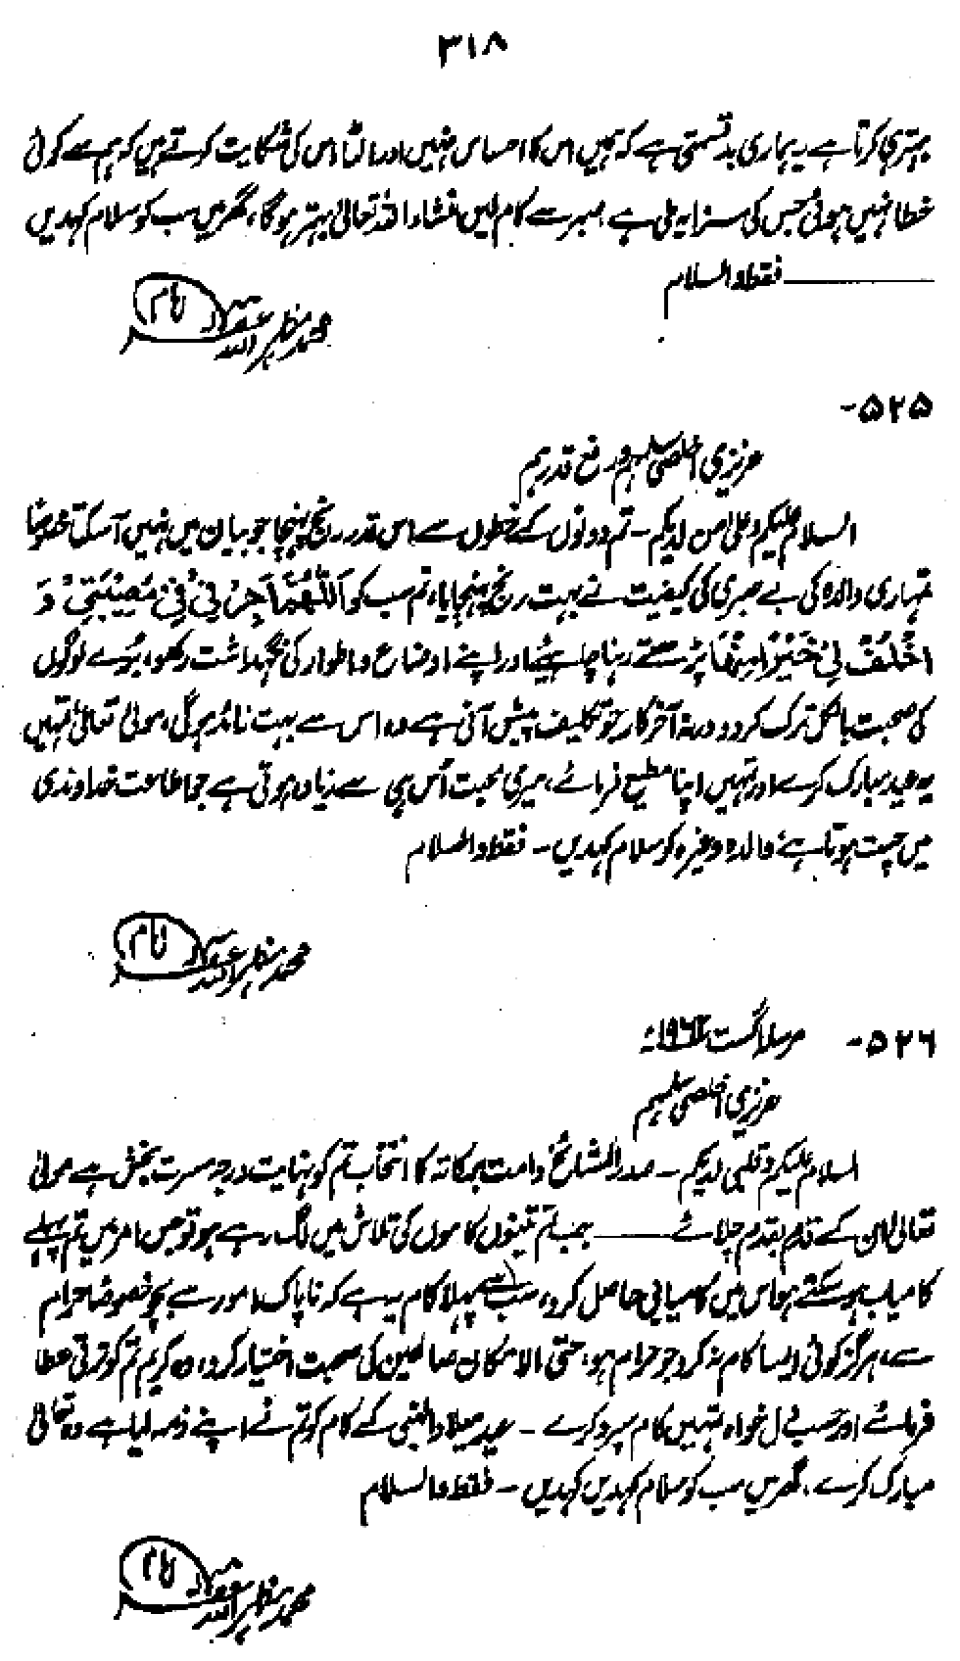 ۳۱۸
بہتری کرتا ہے یہ ہماری بدقسمتی ہے کہ ہمیں اس کا احساس نہیں اور الٹا اس کی شکایت کرتے ہیں کہ ہم سے کوئی
خطا نہیں ہوئی جس کی سزا یہ ملی ہے، صبر سے کام لیں انشاء اللہ تعالیٰ بہتر ہوگا، گھر میں سب کو سلام کہدیں
فقط والسلام
محمد مظہر اللہ غفرلہ
۵۲۵-
عزیزی اخلصی سلمہم ورفع قدرہم
السلام علیکم وعلیٰ من لدیکم - تم دونوں کے خطوں سے اس قدر رنج پہنچا جو بیان میں نہیں آسکتا خصوصًا
تمہاری والدہ کی بے صبری کی کیفیت نے بہت رنج پہنچایا، تم سب کو اَللّٰھُمَّ اَجِرْنِیْ فِیْ مُصِیْبَتِیْ وَ
اخْلُفْ لِیْ خَیْرًا مِنْھَا پڑھتے رہنا چاہیئے اور اپنے اوضاع و اطوار کی نگہداشت رکھو، بُرے لوگوں
کی صحبت بالکل ترک کردو ورنہ آخر کار جو تکلیف پیش آنی ہے وہ اس سے بہت زائد ہوگی، مولیٰ تعالیٰ تمہیں
یہ عید مبارک کرے اور تمہیں اپنا مطیع فرمائے، میری محبت اُس ہی سے زیادہ ہوتی ہے جو اطاعت خداوندی
میں چست ہوتا ہے، والدہ وغیرہ کو سلام کہدیں - فقط والسلام
محمد مظہر اللہ غفرلہ
۵۲۶- اگست ۱۹۶۲ء
عزیزی اخلصی سلمہم
السلام علیکم وقلبی لدیکم - صدر المشائخ دامت برکاتہ کا انتخاب تم کو نہایت درجہ مسرت بخش ہے مولیٰ
تعالیٰ ان کے قدم بقدم چلائے ——— جب تم تینوں کاموں کی تلاش میں لگ رہے ہو تو جس امر میں تم پہلے
کامیاب ہوسکتے ہو اس میں کامیابی حاصل کرو، سب سے پہلا کام یہ ہے کہ ناپاک امور سے بچو خصوصًا حرام
سے، ہرگز کوئی ایسا کام نہ کرو جو حرام ہو، حتی الامکان صالحین کی صحبت اختیار کرو، وہ کریم تم کو ترقی عطا
فرمائے اور حسب دل خواہ تمہیں کام سپرد کرے - عید میلاد النبی کے کام کو تم نے اپنے ذمہ لیا ہے وہ تعالیٰ
مبارک کرے، گھر میں سب کو سلام کہدیں کہدیں - فقط والسلام
محمد مظہر اللہ غفرلہ